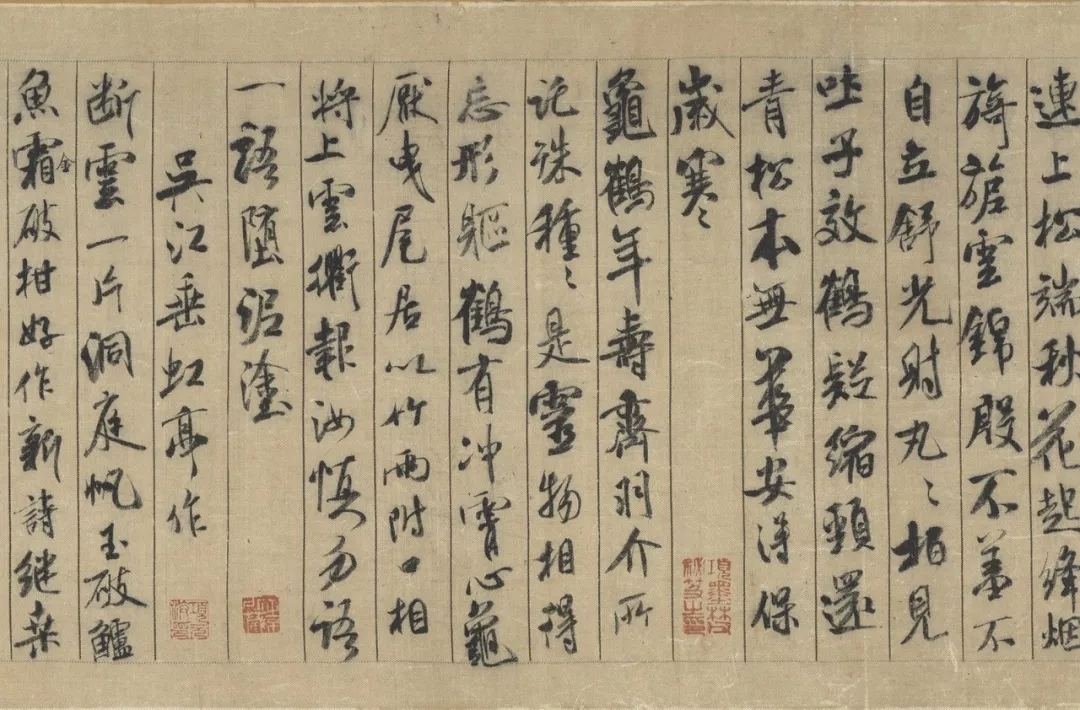 連上松端秋花起絳烟
旖旎雲錦殷不羞不
自立舒光射丸〻柏見
吐子效鶴疑縮頸還
青松本無華安得保
歲寒〻
項墨林父祕笈之印
龜鶴年壽齊羽介所
託殊種〻是靈物相得
忘形軀鶴有冲霄心龜
厭曳尾居以竹兩附口相
將上雲衢報汝慎勿語
一語墮泥塗
吳江垂虹亭作
断雲一片洞庭帆玉破鱸
魚霜金破柑好作新詩継桒